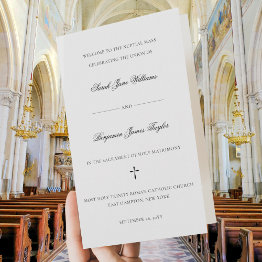 WELCOME TO THE NUPTIAL MASS
CELEBRATING THE UNION OF
Sarah Jane Williams
AND
Benjamin James Taylor
IN THE SACRAMENT OF HOLY MATRIMONY
MOST HOLY TRINITY ROMAN CATHOLIC CHURCH
EAST HAMPTON, NEW YORK
SEPTEMBER